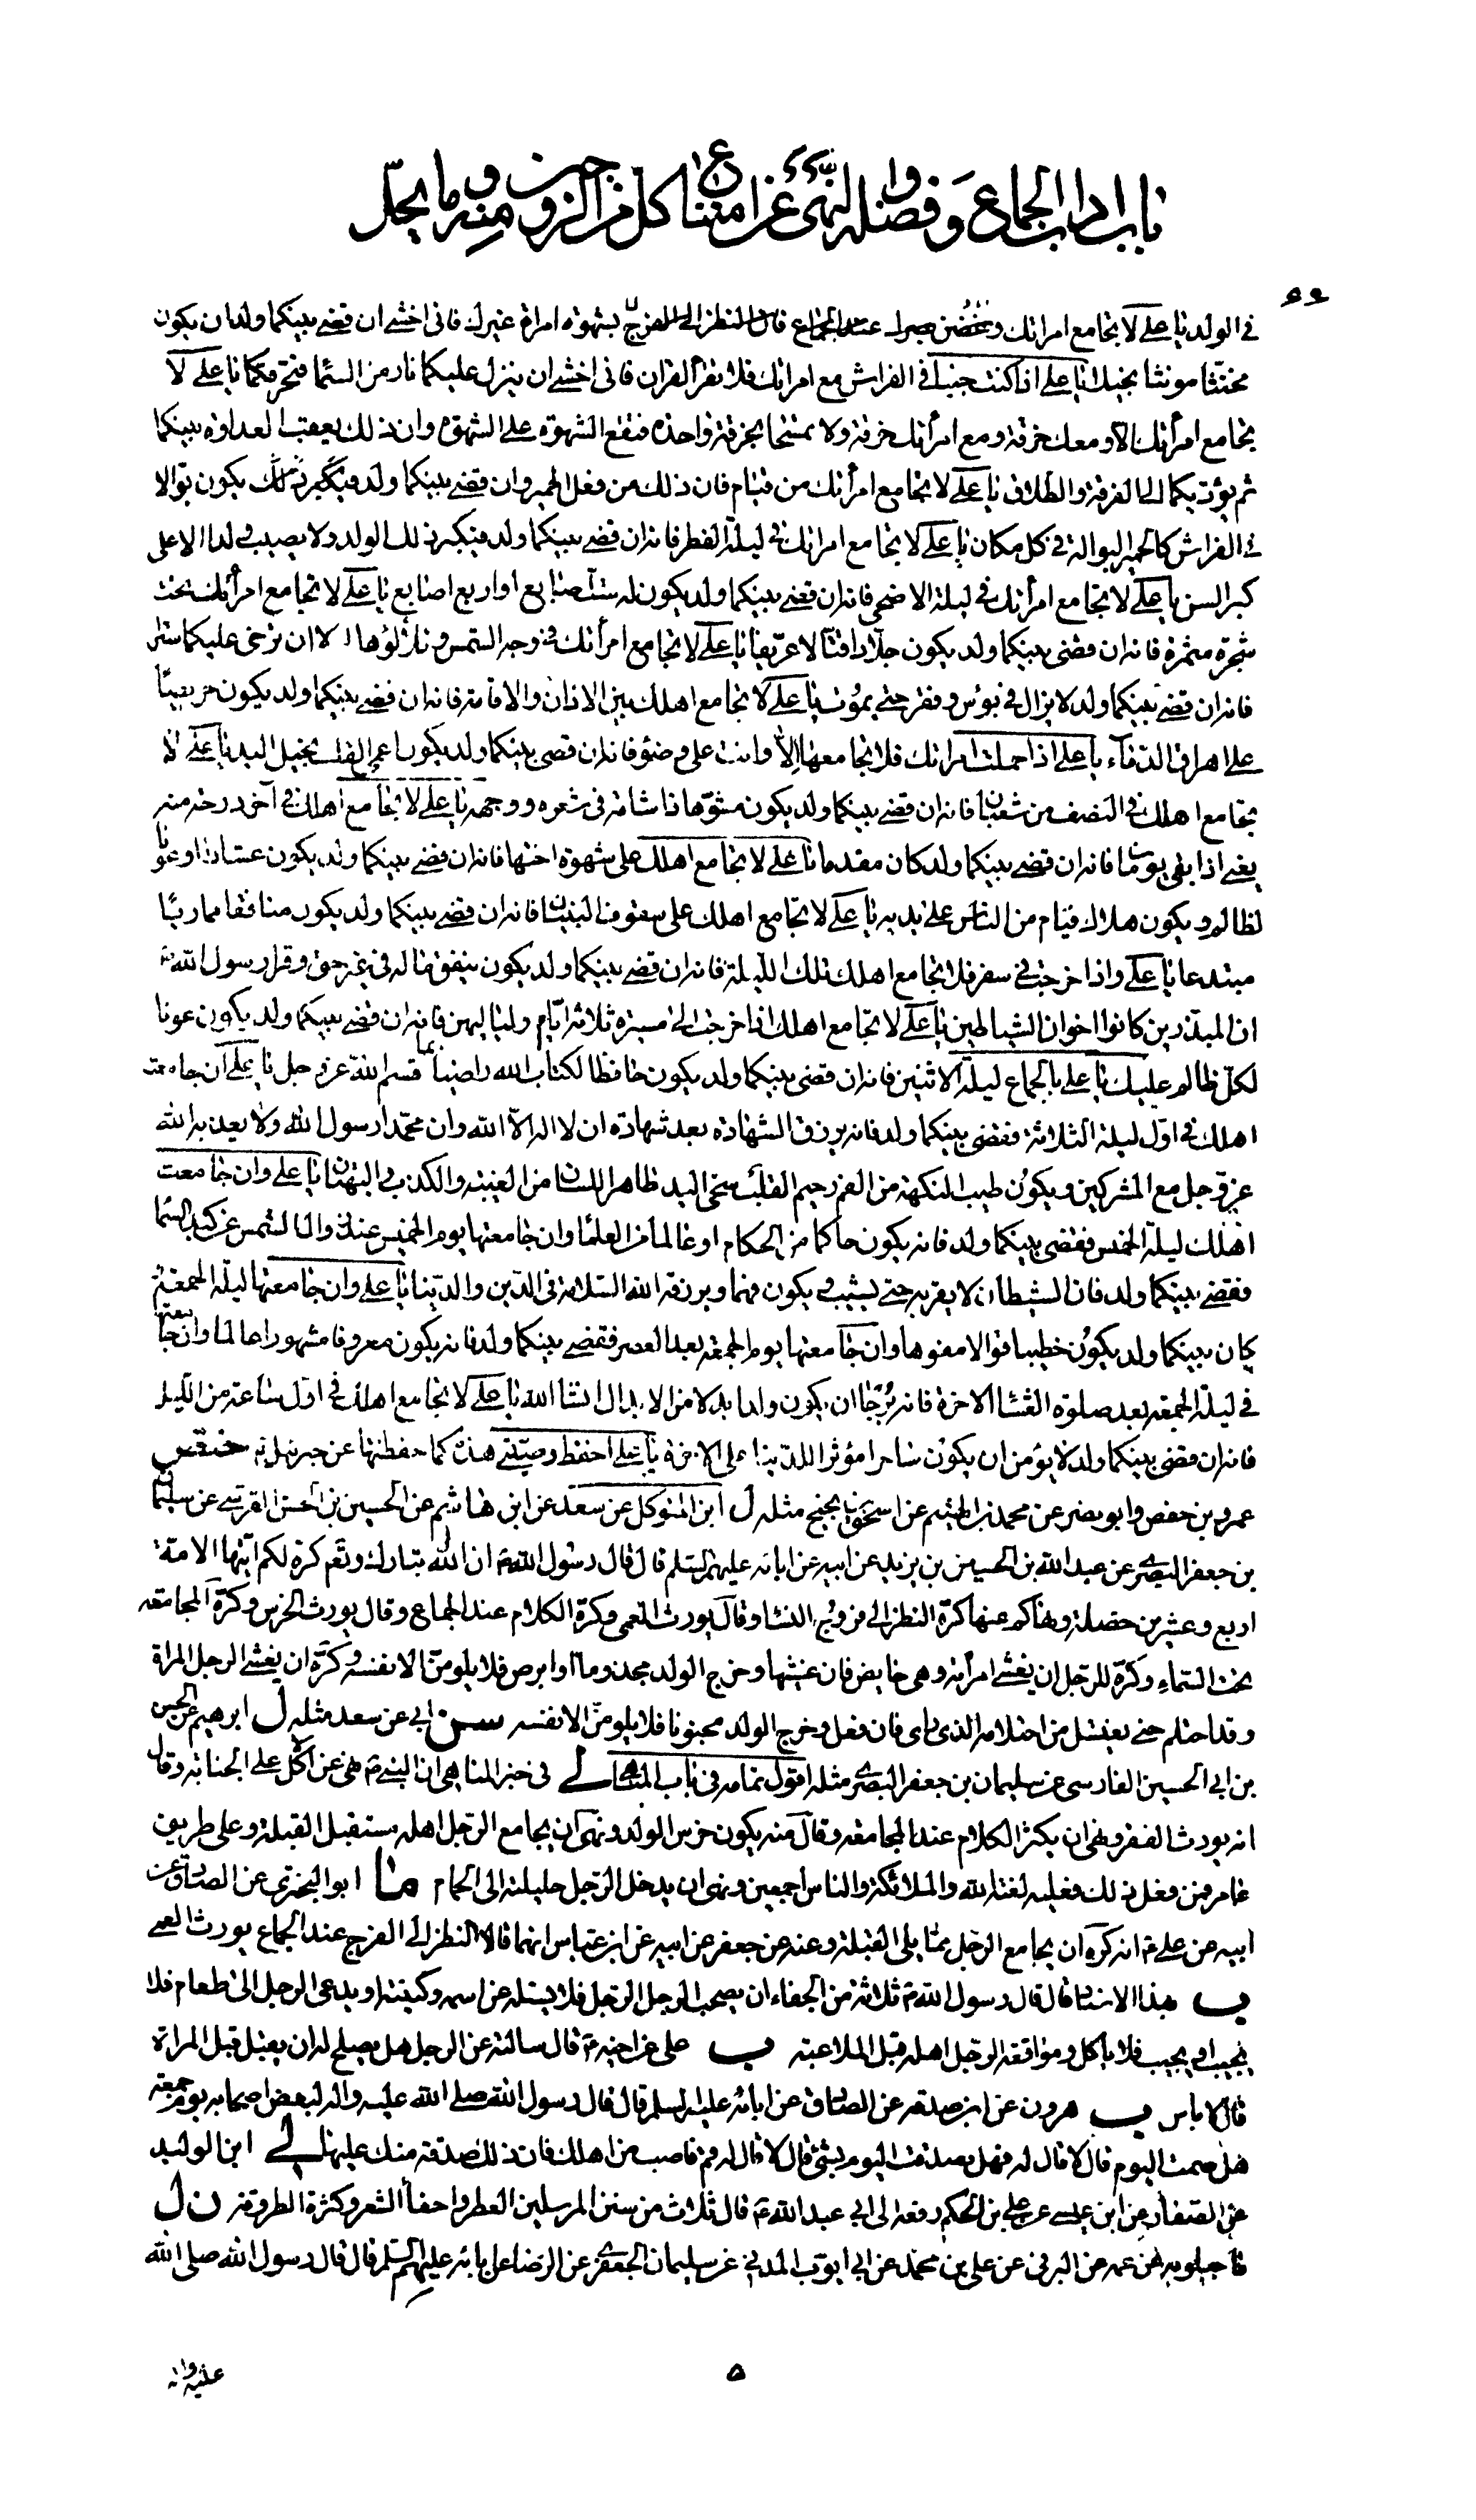 باب اداب الجماع وفضله والنهي عن امتناع كل من الزوجين ومنه وما يحل
٥٥
في الولد يا علي لا تجامع امراتك وغضن بصرك عند الجماع فان النظر الى الفرج بشهوة امراة غيرك فاني اخشى ان قضى بينكما ولد ان يكون
مخنثا مونثا بخيلا يا علي اذا كنت جنبا في الفراش مع امراتك فلا تقرا القران فاني اخشى ان ينزل عليكما نار من السماء فتحرقكما يا علي لا
تجامع امرأتك الا ومعك خرقة ومع امرأتك خرقة ولا تمسحا بخرقة واحدة فتقع الشهوة على الشهوة وان ذلك يعقب العداوة بينكما
ثم يؤديكما الى الفرقة والطلاق يا علي لا تجامع امرأتك من قيام فان ذلك من فعل الحمير وان قضى بينكما ولد يكون بوالا
في الفراش كالحمير البوالة في كل مكان يا علي لا تجامع امراتك في ليلة الفطر فانه ان قضى بينكما ولد فيكبر ذلك الولد ولا يصيب ولدا الا على
كبر السن يا علي لا تجامع امرأتك في ليلة الاضحى فانه ان قضى بينكما ولد يكون له ست اصابع او اربع اصابع يا علي لا تجامع امرأتك تحت
شجرة مثمرة فانه ان قضى بينكما ولد يكون جلادا قتالا عريفا يا علي لا تجامع امرأتك في وجه الشمس وتلألؤها الا ان ترخى عليكما ستر
فانه ان قضى بينكما ولد لا يزال في بؤس وفقر حتى يموت يا علي لا تجامع اهلك بين الاذان والاقامة فانه ان قضى بينكما ولد يكون حريصا
على اهراق الدماء يا علي اذا حملت امراتك فلا تجامعها الا وانت على وضوء فانه ان قضى بينكما ولد يكون اعمى القلب بخيل اليد يا علي لا
تجامع اهلك في النصف من شعبان فانه ان قضى بينكما ولد يكون مشوها ذا شامة في شعره ووجهه يا علي لا تجامع اهلك في آخر درجة منه
يعني اذا بقى يومان فانه ان قضى بينكما ولد كان مقدما يا علي لا تجامع اهلك على شهوة اختها فانه ان قضى بينكما ولد يكون عشارا او عونا
لظالم ويكون هلاك فيام من الناس على يديه يا علي لا تجامع اهلك على سقوف البنيان فانه ان قضى بينكما ولد يكون منافقا مماريا
مبتدعا يا علي واذا خرجت في سفر فلا تجامع اهلك تلك الليلة فانه ان قضى بينكما ولد يكون ينفق ماله في غير حق وقرا رسول الله ص
ان المبذرين كانوا اخوان الشياطين يا علي لا تجامع اهلك اذا خرجت الى مسيرة ثلاثة ايام ولياليهن فانه ان قضى بينكما ولد يكون عونا
لكل ظالم عليك يا علي بالجماع ليلة الاثنين فانه ان قضى بينكما ولد يكون حافظا لكتاب الله راضيا بما قسم الله عز وجل يا علي ان جامعت
اهلك في اول ليلة الثلاثة فقضى بينكما ولد فانه يرزق الشهادة بعد شهادة ان لا اله الا الله وان محمدا رسول الله ولا يعذبه الله
عز وجل مع المشركين ويكون طيب النكهة من الفم رحيم القلب سخى اليد طاهر اللسان من الغيبة والكذب والبهتان يا علي وان جامعت
اهلك ليلة الخميس فقضى بينكما ولد فانه يكون حاكما من الحكام او عالما من العلماء وان جامعتها يوم الخميس عند زوال الشمس عن كبد السماء
فقضى بينكما ولد فان الشيطان لا يقربه حتى يشيب ويكون فهما ويرزقه الله السلامة في الدين والدنيا يا علي وان جامعتها ليلة الجمعة
كان بينكما ولد يكون خطيبا قوالا مفوها وان جامعتها يوم الجمعة بعد العصر فقضى بينكما ولد فانه يكون معروفا مشهورا عالما وان جامعتها
في ليلة الجمعة بعد صلوة العشاء الاخرة فانه يرجى ان يكون ولدا بدلا من الابدال انشا الله يا علي لا تجامع اهلك في اول ساعة من الليل
فانه ان قضى بينكما ولد لا يؤمن ان يكون ساحرا مؤثرا للدنيا على الاخرة يا علي احفظ وصيتي هذه كما حفظتها عن جبرئيل ع
عمرو بن حفص وابو بصير عن محمد بن الهيثم عن اسحق بن نجيح مثله ل ابن المتوكل عن سعد عن ابن هاشم عن الحسين بن الحسن القرشي عن سليمان
بن جعفر البصري عن عبد الله بن الحسين بن يزيد عن ابيه عن ابائه عليهم السلم قال قال رسول الله ص ان الله تبارك وتع كره لكم ايتها الامة
اربع وعشرين خصلة ونهاكم عنها كره النظر الى فروج النساء وقال يورث العمى وكره الكلام عند الجماع وقال يورث الخرس وكره المجامعة
تحت السماء وكره للرجل ان يغشى امرأته وهي حايض فان غشيها وخرج الولد مجذوما او ابرص فلا يلومن الا نفسه وكره ان يغشى الرجل المراة
وقد احتلم حتى يغتسل من احتلامه الذي راى فان فعل وخرج الولد مجنونا فلا يلومن الا نفسه سن ابي عن سعد مثله ل ابرهيم عن الحسن
بن ابي الحسين الفارسي عن سليمان بن جعفر البصري مثله اقول تمامه في باب المناهي لي في خبر المناهي ان النبي ص نهى عن الاكل على الجنابة وقال
انه يورث الفقر ونهى ان يكثر الكلام عند المجامعة وقال منه يكون خرس الولد ونهى ان يجامع الرجل اهله مستقبل القبلة وعلى طريق
عامر فمن فعل ذلك فعليه لعنة الله والملائكة والناس اجمعين ونهى ان يدخل الرجل حليلته الى الحمام ما ابو البختري عن الصادق عن
ابيه عن علي ع انه كره ان يجامع الرجل مما يلي القبلة وعنه عن جعفر عن ابيه عن ابن عباس انهما قالا النظر الى الفرج عند الجماع يورث العمى
ب بهذا الاسناد قال قال رسول الله ص ثلاثة من الجفاء ان يصحب الرجل الرجل فلا يسئله عن اسمه وكنيته او يدعى الرجل الى طعام فلا
يجيب او يجيب فلا ياكل ومواقعة الرجل اهله قبل الملاعبة ب علي عن اخيه ع قال سالته عن الرجل هل يصلح له ان يقبل قبل المراة
قال لا باس ب هرون عن ابن صدقة عن الصادق عن ابائه عليهم السلم قال قال رسول الله صلى الله عليه واله لبعض اصحابه يوم جمعة
هل صمت اليوم قال لا قال له فهل تصدقت اليوم بشئ قال لا قال له قم فاصب من اهلك فان ذلك صدقة منك عليها لي ابن الوليد
عن الصفار عن ابن عيسى عن علي بن الحكم رفعه الى ابي عبد الله ع قال ثلاث من سنن المرسلين العطر واحفاء الشعر وكثرة الطروقة ن ل
ماجيلويه عن عمه عن البرقي عن علي بن محمد عن ابي ايوب المديني عن سليمان الجعفري عن الرضا عن ابائه عليهم السلم قال قال رسول الله صلى الله
٥
عليه واله